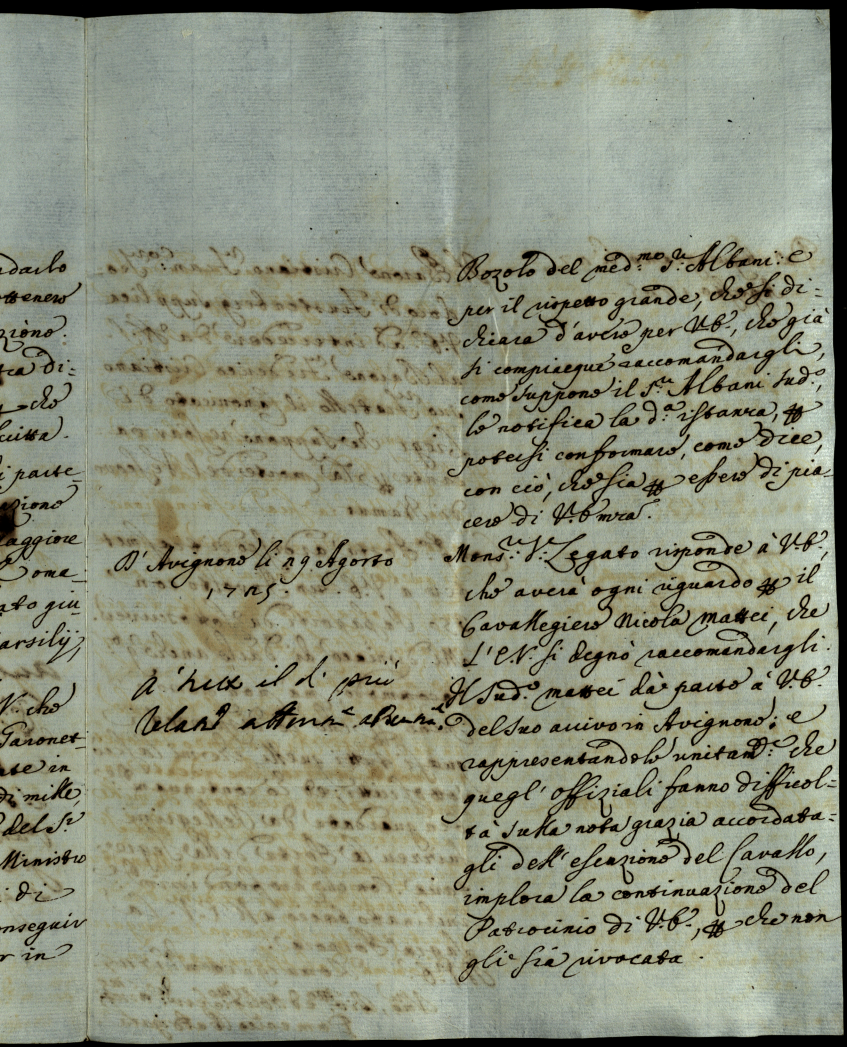 ndarlo
ottenere
zione.
ca di-
che
scitta.
i parte-
azione
aggiore
oma-
ato giu-
arsilij,
V. che
Garonet-
ate in
di mille,
del S.r
Ministro
i di
onseguir
r in
D'Avignone li 29 Agosto
1725.
il più
Bozolo del med.mo S.r Albani: e
per il rispetto grande, che si di-
chiara d'avere per V.E., che già
si compiacque raccomandargli,
come suppone il S.r Albani sud.o,
le notifica la d.a istanza, p
potersi conformare, come dice,
con ciò, che sia p essere di pia-
cere di V.E. mra.
Mons.r V. Legato risponde à V.E.,
che averà ogni riguardo p il
Cavallegiere Nicola Mattei, che
L'E.V. si degnò raccomandargli.
Il Sud.o Mattei dà parte à V.E.
del suo arrivo in Avignone; e
rappresentandole unitam.e che
quegl' offiziali fanno difficol-
tà sulla nota grazia accordata-
gli dell'esenzione del Cavallo,
implora la continuazione del
Patrocinio di V.E., p che non
gli sia rivocata.